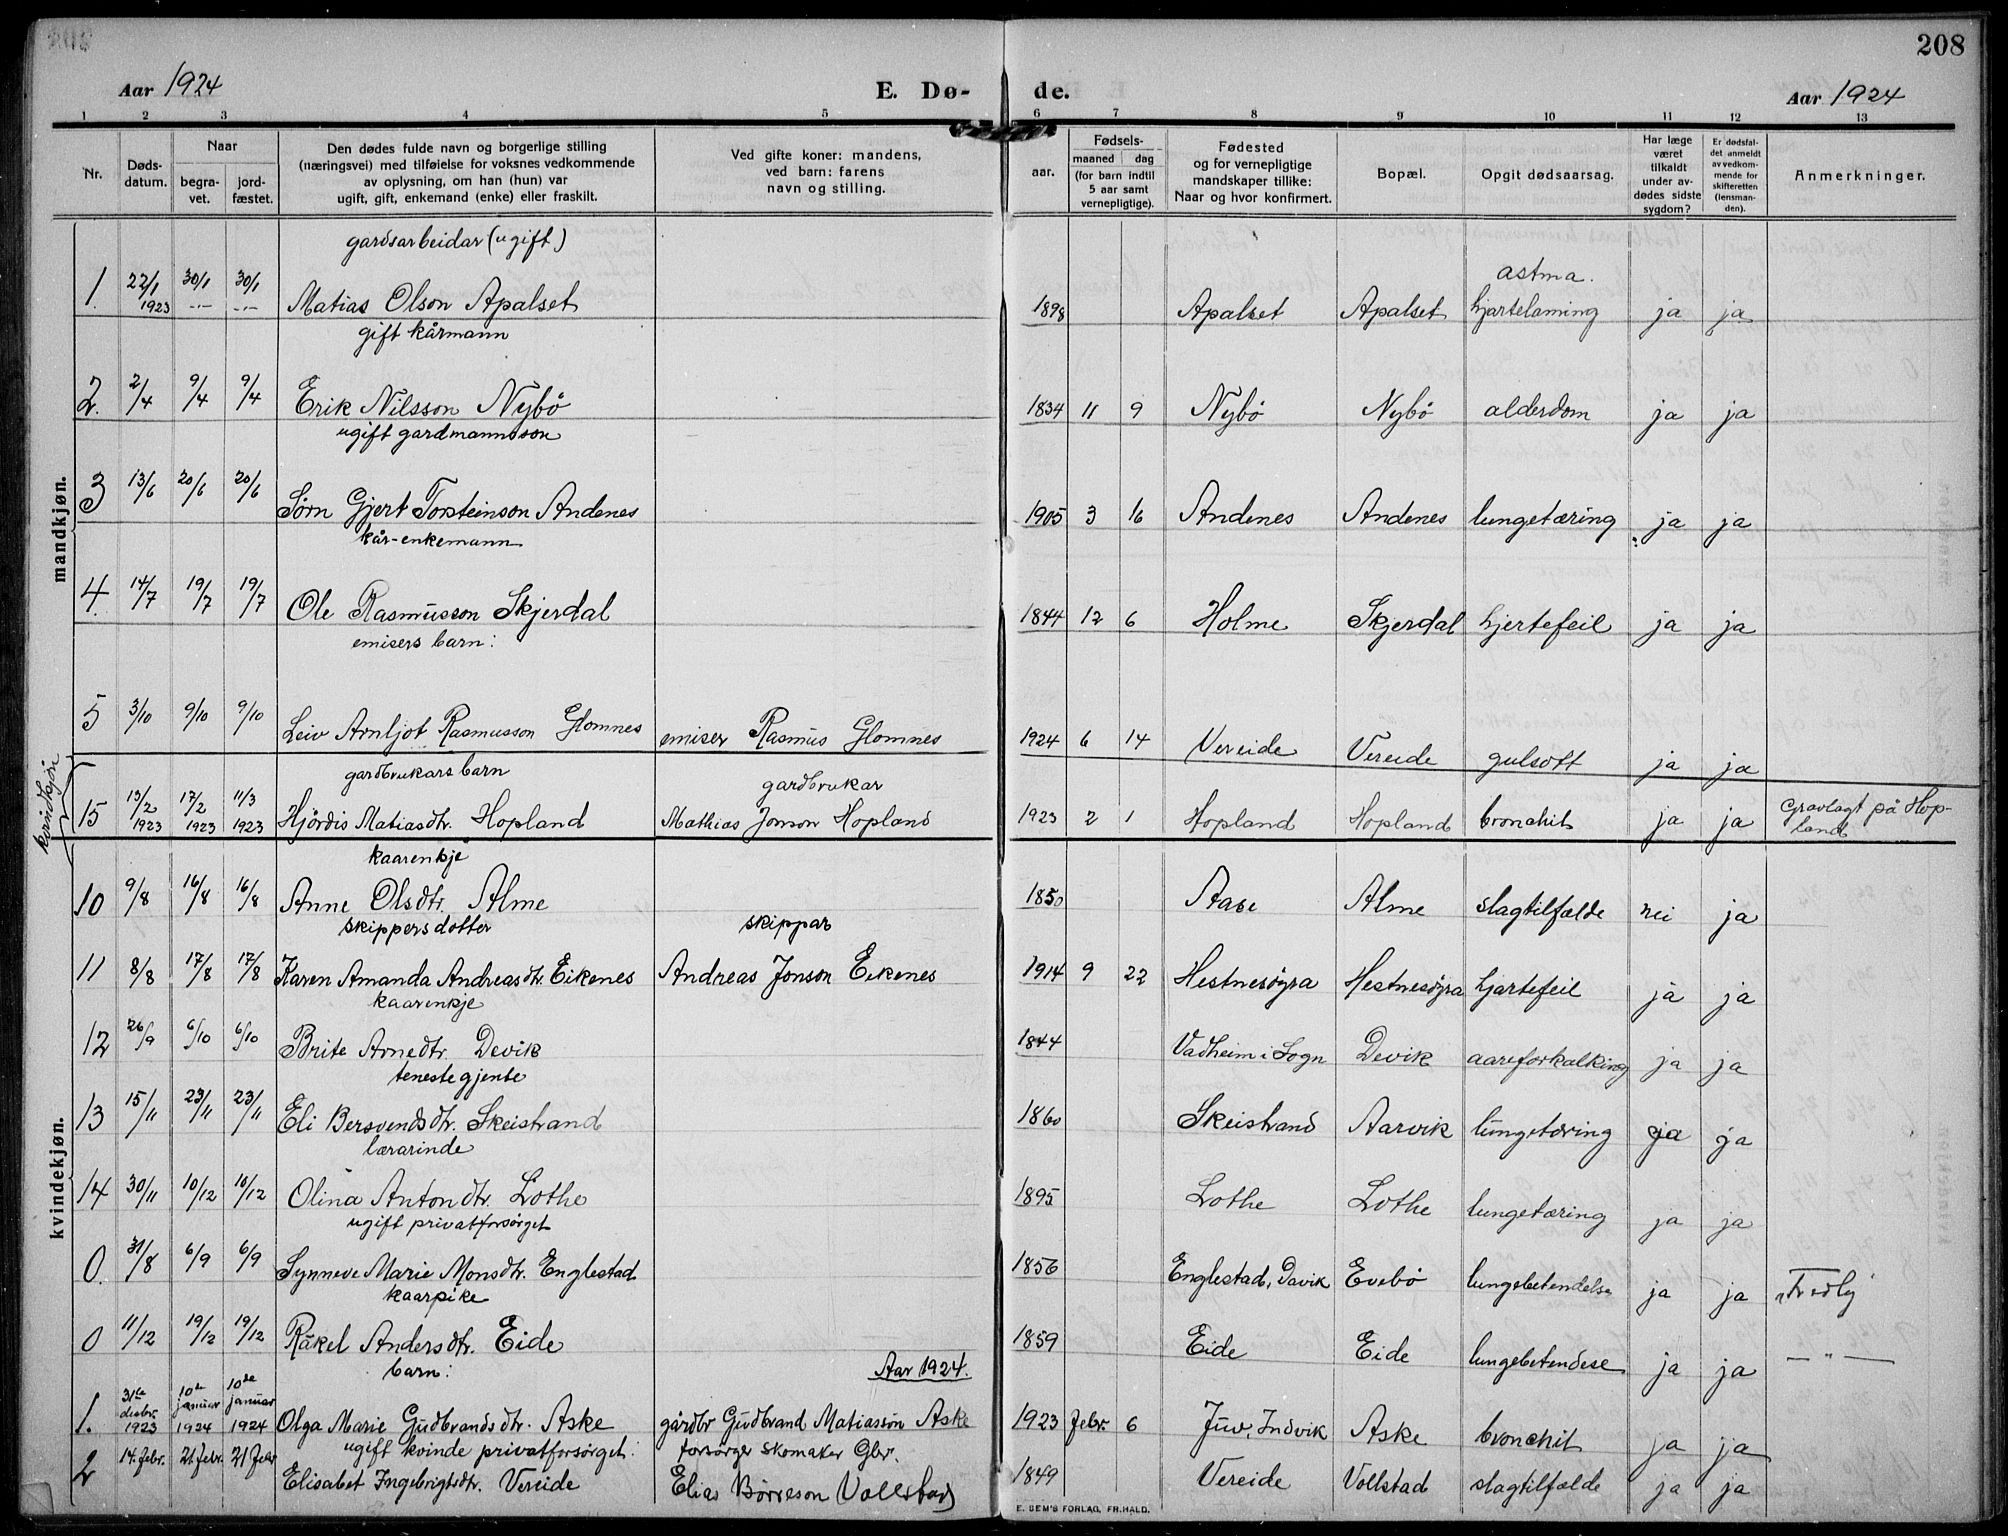 208
Aar 1924 E. Dø- de. Aar 1924
1 2 3 4 5 6 7 8 9 10 11 12 13
Nr.
Døds-
datum.
Naar
begra-
vet.
jord-
fæstet.
Den dødes fulde navn og borgerlige stilling
(næringsvei) med tilføielse for voksnes vedkommende
av oplysning, om han (hun) var
ugift, gift, enkemand (enke) eller fraskilt.
Ved gifte koner: mandens,
ved barn: farens
navn og stilling.
Fødsels-
aar.
maaned
dag
(for barn indtil
5 aar samt
vernepligtige).
Fødested
og for vernepligtige
mandskaper tillike:
Naar og hvor konfirmert.
Bopæl.
Opgit dødsaarsag.
Har læge
været
tilkaldt
under av-
dødes sidste
sygdom?
Er dødsfal-
det anmeldt
av vedkom-
mende for
skifteretten
(lensman-
den).
Anmerkninger.
mandkjøn.
gardsarbeidar (ugift)
astma.
1. 22/1 1923 30/1 -"- 30/1 -"- Matias Olson Apalset 1898 Apalset Apalset hjartelaming ja ja
gift kårmann
2. 2/4 9/4 9/4 Erik Nilsson Nybö 1834 11 9 Nybö Nybö alderdom ja ja
ugift gardmannsson
3 13/6 20/6 20/6 Sörn Gjert Torsteinson Andenes 1905 3 16 Andenes Andenes lungetæring ja ja
kår-enkemann
4. 14/7 19/7 19/7 Ole Rasmusson Skjerdal 1844 12 6 Holme Skjerdal hjertefeil ja ja
emisers barn:
5 3/10 9/10 9/10 Leiv Arnljot Rasmusson Glomnes emiser Rasmus Glomnes 1924 6 14 Vereide Vereide gulsott ja ja
kvindkjön
gardbrukars barn gardbrukar
15 13/2 1923 17/2 1923 11/3 1923 Hjördis Matiasdtr. Hopland Mathias Jonson Hopland 1923 2 1 Hopland Hopland bronchit ja ja Gravlagt på Hop-
land
kvindekjøn.
kaarenkje
10 9/8 16/8 16/8 Anne Olsdtr. Alme 1850 Aase Alme slagtilfælde nei ja
skippersdotter skippar
11 8/8 17/8 17/8 Karen Amanda Andreasdtr. Eikenes Andreas Jonson Eikenes 1914 9 22 Hestnesöyra Hestnesöyra hjartefeil ja ja
kaarenkje
12 26/9 6/10 6/10 Brite Arnedtr. Devik 1844 Vadheim i Sogn Devik aareforkalking ja ja
tenestegjente
13 15/11 23/11 23/11 Eli Bersvendsdtr. Skeistrand 1860 Skeistrand Aarvik lungetæring ja ja
lærarinde
14 30/11 10/12 10/12 Olina Antondtr. Lothe 1895 Lothe Lothe lungetæring ja ja
ugift privatforsörget
0. 31/8 6/9 6/9 Synneve Marie Monsdtr. Englestad 1856 Englestad, Davik Evebö lungebetendelse ja ja "Fredly
kaarpike
0 11/12 19/12 19/12 Rakel Andersdtr. Eide 1859 Eide Eide lungebetendese ja ja — " —
barn: Aar 1924.
1. 31te desbr. 1923 10de januar 1924 10de januar 1924 Olga Marie Gudbrandsdtr. Aske gårdbr Gudbrand Matiasson Aske 1923 febr. 6 Juv, Indvik Aske bronchit ja ja
ugift kvinde privatforsørget: forsörger skomaker Gbr.
2 14. febr. 21. febr. 21 febr Elisabet Ingebrigtsdtr. Vereide Elias Börreson Vollstad 1849 Vereide Vollstad slagtilfælde ja ja
E. SEM'S FORLAG, FR.HALD.